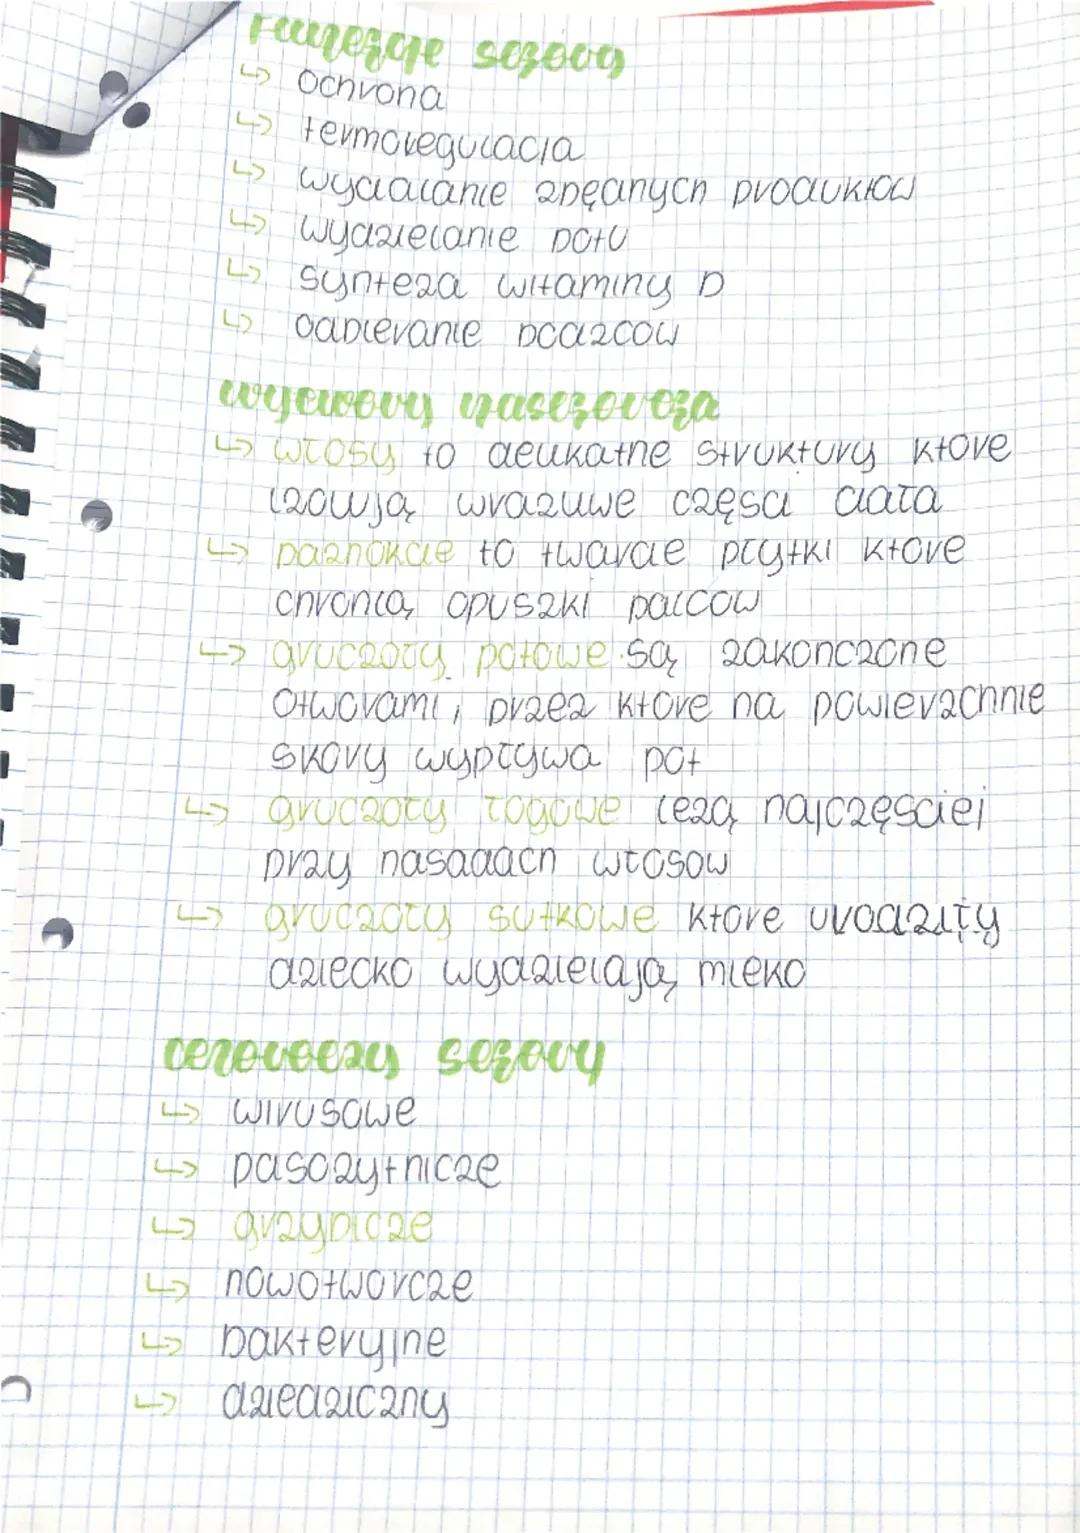 Funkcje skóry
↳ ochrona
↳ termoregulacja
↳ wydalanie zbędnych produktów
↳ wydzielanie potu
↳ synteza witaminy D
↳ odbieranie bodźców
wytwory naskórka
↳ włosy to delikatne struktury które
izolują wrażliwe części ciała
↳ paznokcie to twarde płytki które
chronią opuszki palców
↳ gruczoły potowe są zakończone
otworami, przez które na powierzchnie
skóry wypływa pot
↳ gruczoły łojowe leżą najczęściej
przy nasadach włosów
↳ gruczoły sutkowe które urodziły
dziecko wydzielają mleko
choroby skóry
↳ wirusowe
↳ pasożytnicze
↳ grzybicze
↳ nowotworcze
↳ bakteryjne
↳ dziedziczny